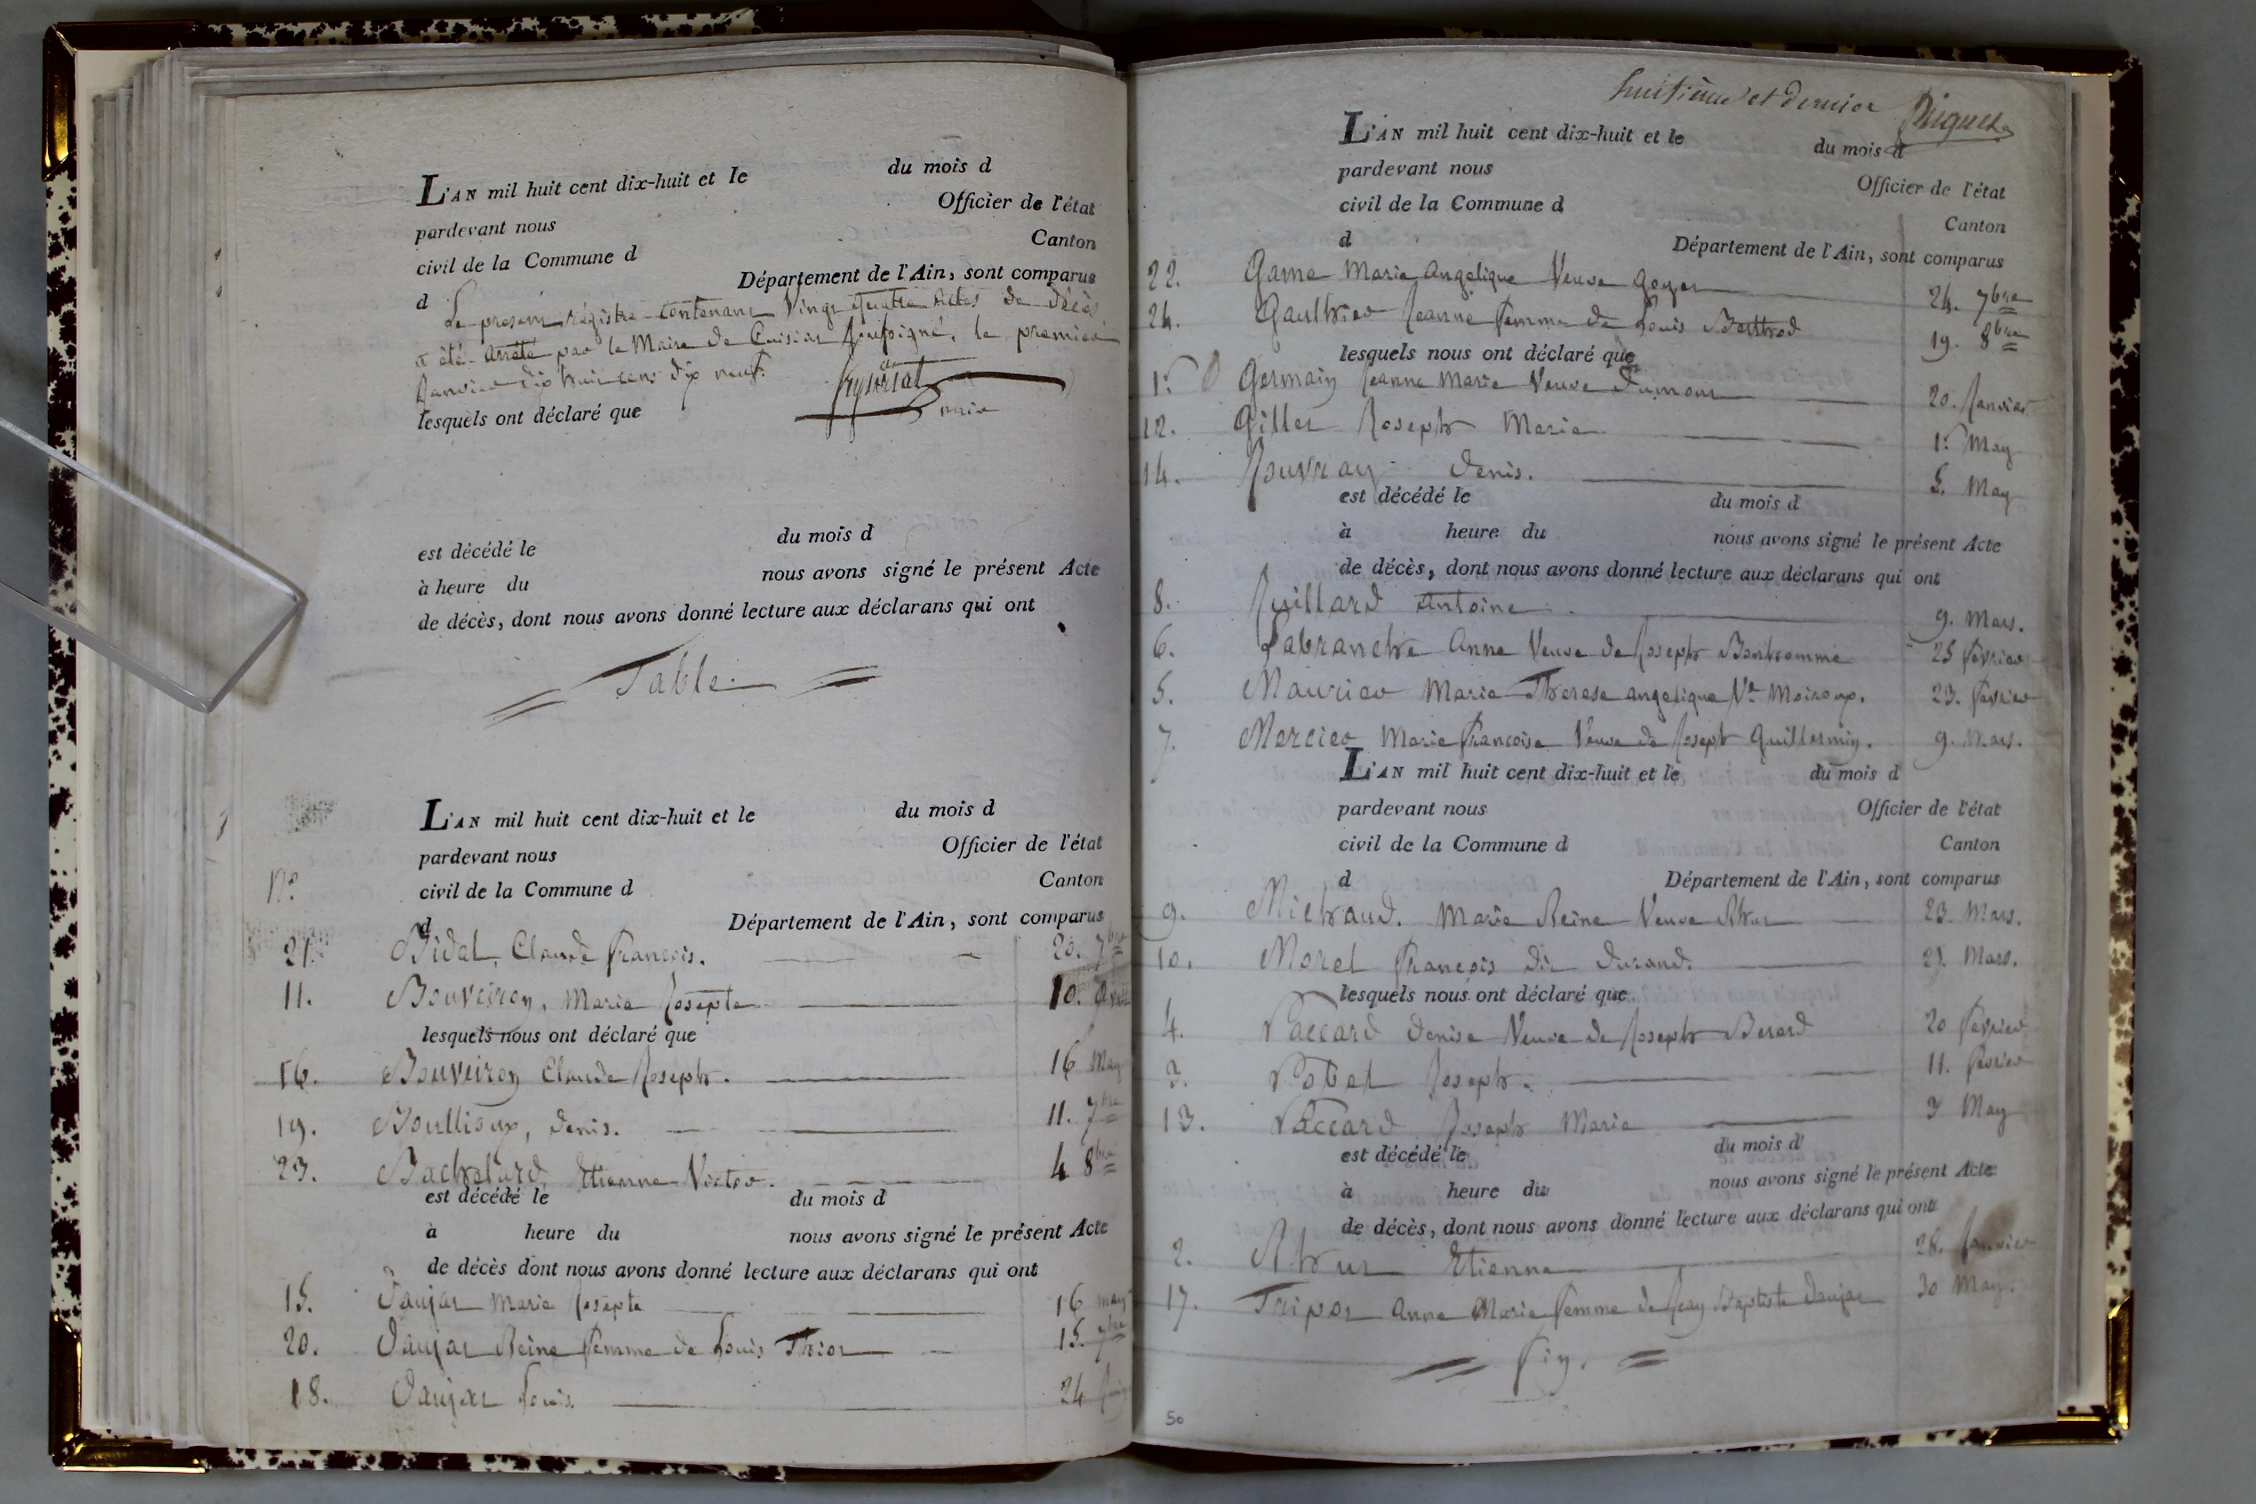 L'AN mil huit cent dix-huit et le du mois d
pardevant nous Officier de l'état
civil de la Commune d Canton
d Département de l'Ain, sont comparus
Le présent régistre contenant Vingt quatre Actes de décès
a été arrêté par le Maire de Cuisiat soussigné, le premier
Janvier dix huit cent dix neuf.
lesquels ont déclaré que
maire
est décédé le du mois d
à heure du nous avons signé le présent Acte
de décès, dont nous avons donné lecture aux déclarans qui ont
Table
L'AN mil huit cent dix-huit et le du mois d
pardevant nous Officier de l'état
No. civil de la Commune d Canton
d Département de l'Ain, sont comparus
21. Bidal, Claude François. 20. 7bre
11. Bouveiron, Marie Josepte 10. avril
lesquels nous ont déclaré que
16. Bouveiron Claude Joseph. 16 May
19. Boullioux, denis. 11. 7bre
23. Bachelard, Etienne Victor. 4 8bre
est décédé le du mois d
à heure du nous avons signé le présent Acte
de décès dont nous avons donné lecture aux déclarans qui ont
15. Daujat Marie Josepte 16 may
20. Daujat Reine femme de Louis Thior 15. 7bre
18. Daujat Louis. 24
huitième et dernier
L'AN mil huit cent dix-huit et le du mois d
pardevant nous Officier de l'état
civil de la Commune d Canton
d Département de l'Ain, sont comparus
22. Game Marie Angelique Veuve Goyet 24. 7bre
24. Gauthier Jeanne femme de Louis Berthod 19. 8bre
lesquels nous ont déclaré que
1. Germain Jeanne Marie Veuve Dumont 20. Janvier
12. Gillet Joseph Marie 1. May
14. Jouvray denis. 5. May
est décédé le du mois d
à heure du nous avons signé le présent Acte
de décès, dont nous avons donné lecture aux déclarans qui ont
8. Juillard Antoine 9. Mars.
6. Labranche Anne Veuve de Joseph Bonhomme 25 février
5. Maurier Marie Therese angelique Ve Moiroux. 23. février
7. Mercier Marie françoise Veuve de Joseph Guillermin. 9. Mars.
L'AN mil huit cent dix-huit et le du mois d
pardevant nous Officier de l'état
civil de la Commune d Canton
d Département de l'Ain, sont comparus
9. Michaud. Marie Reine Veuve 23. Mars.
10. Morel François dit durand. Mars.
lesquels nous ont déclaré que
4. Paccard denise Veuve de Joseph Berard 20 février
3. Potet Joseph. 11. février
13. Paccard Joseph Marie 3 May
est décédé le du mois d
à heure du nous avons signé le présent Acte
de décès, dont nous avons donné lecture aux déclarans qui ont
2. Etienne 28. Janvier
17. Tripoz Anne Marie femme de Jean Baptiste Daujat 30 May.
fin.
50